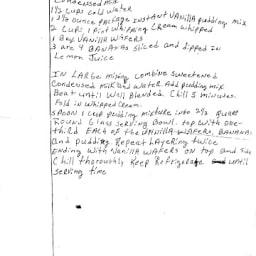 Condensed milk
1½ cups cold water
1 3½ ounce package INSTANT VANilla pudding mix
2 CUPS 1 Pint Whipping Cream whipped
1 Box VANilla WAFERS
3 are 4 BANANAS sliced and dipped IN
Lemon Juice
IN LARGE mixing combine sweetened
Condensed milk and water. Add pudding mix
Beat until Well Blended. Chill 5 minutes.
Fold in whipped cream.
SPOON 1 CUP pudding mixture into 2½ quart
Round Glass serving Bowl. top with one-
third EACH of the VANILLA WAFERS, BANANAS
and pudding Repeat LAYering twice
ENDing With Vanilla WAFERS ON top and
Chill thoroughly Keep Refrigerate until
serving time